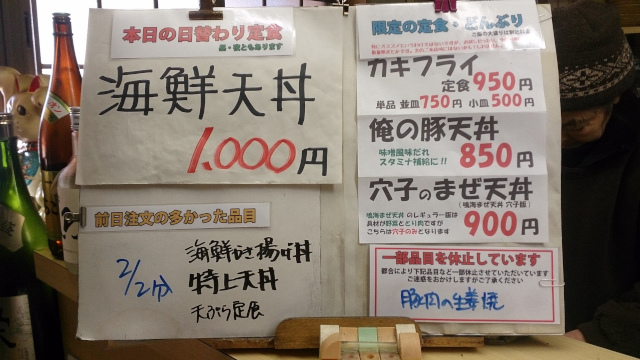 本日の日替わり定食
昼・夜ともあります
海鮮天丼
1,000円
前日注文の多かった品目
2/2分
海鮮かき揚げ丼
特上天丼
天ぷら定食
限定の定食・どんぶり
カキフライ
定食950円
単品 並皿750円 小皿500円
俺の豚天丼
味噌風味だれ
スタミナ補給に!!
850円
穴子のまぜ天丼
(鳴海まぜ天丼 穴子版)
鳴海まぜ天丼 のレギュラー版は
具材が野菜ととり肉ですが
こちらは穴子のみとなります
900円
一部品目を休止しています
都合により下記品目など一部休止させていただいています
ご迷惑をおかけしますがご了承ください
豚肉の生姜焼